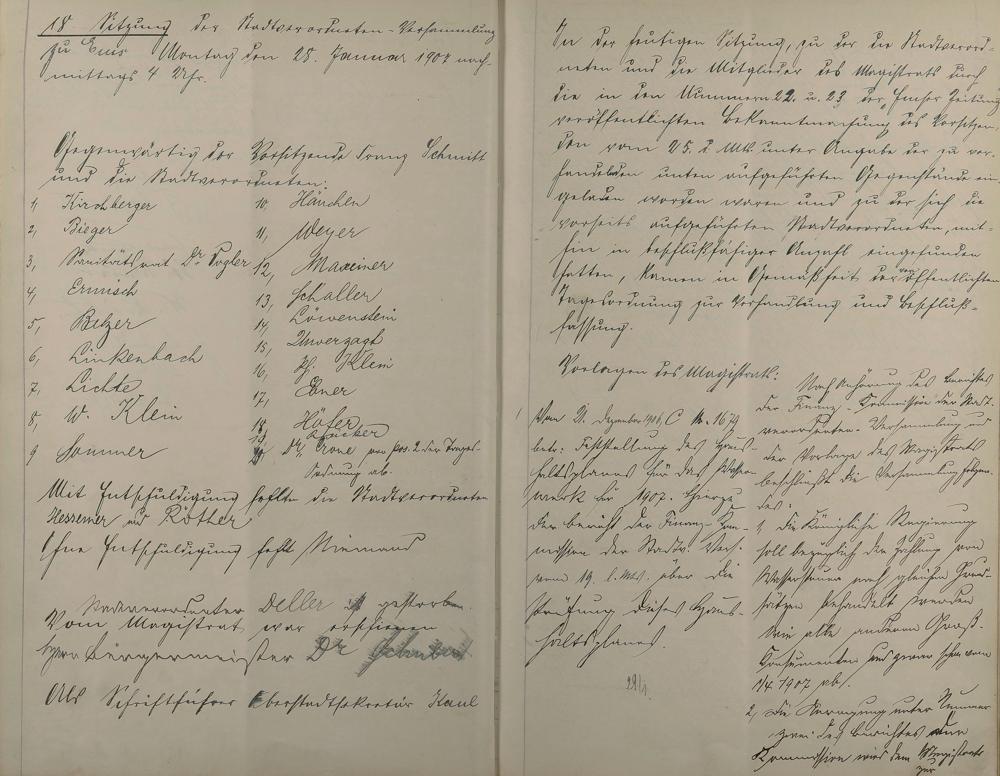 18 Sitzung der Stadtverordneten-Versammlung
zu Ems Montag den 28. Januar 1907 nach-
mittags 4 Uhr.
Gegenwärtig der Vorsitzende Franz Schmitt
und die Stadtverordneten:
1, Kirchberger
2, Bieger
3, Sanitätsrat Dr. Vogler
4, Ermisch
5, Belzer
6, Linkenbach
7, Lichte
8, W. Klein
9 Sommer
10, Hänchen
11, Weyer
12, Maxeiner
13, Schaller
14, Löwenstein
15, Unverzagt
16, Hr. Klein
17, Ebner
18, Höfer
19,
20, Dr. Crone von Pos. 2 der Tages-
Ordnung ab.
Mit Entschuldigung fehlten die Stadtverordneten
Hessemer und Röther
Ohne Entschuldigung fehlt Niemand
Stadtverordneter Deller ist gestorben
Vom Magistrat war erschienen
Herr Bürgermeister Dr Schubert
Als Schriftführer Oberstadtsekretär Kaul
In der heutigen Sitzung, zu der die Stadtverord-
neten und die Mitglieder des Magistrats durch
die in den Nummern 22. u. 23 der Emser Zeitung
veröffentlichten Bekanntmachung des Vorsitzen-
den vom 25. d. Mts. unter Angabe der zu ver-
handelnden unten aufgeführten Gegenstände ein-
geladen worden waren und zu der sich die
vorseits aufgeführten Stadtverordneten, mit-
hin in beschlußfähiger Anzahl eingefunden
hatten, kamen in Gemäßheit der veröffentlichten
Tagesordnung zur Verhandlung und Beschluß-
fassung.
Vorlagen des Magistrats:
1 Vom 21. Dezember 1906 C No. 1679
betr: Feststellung des Haus-
haltsplanes für das Wasser-
werk für 1907. Hierzu
der Bericht der Finanz-Kom-
mission der Stadtv. Vers.
vom 19. l. Mts. über die
Prüfung dieses Haus-
haltsplanes.
Nach Anhörung des Berichtes
der Finanz-Kommission der Stadt-
verordneten-Versammlung und
der Vorlage des Magistrats
beschließt die Versammlung folgen-
des:
1, die Königliche Regierung
soll bezüglich der Zahlung von
Wassersteuer nach gleichen Grund-
sätzen behandelt werden
wie alle anderen Groß-
Konsumenten und zwar schon vom
1/4. 1907 ab.
2, die Anregung unter Nummer
zwei des Berichtes der
Kommission wird dem Magistrate
zur